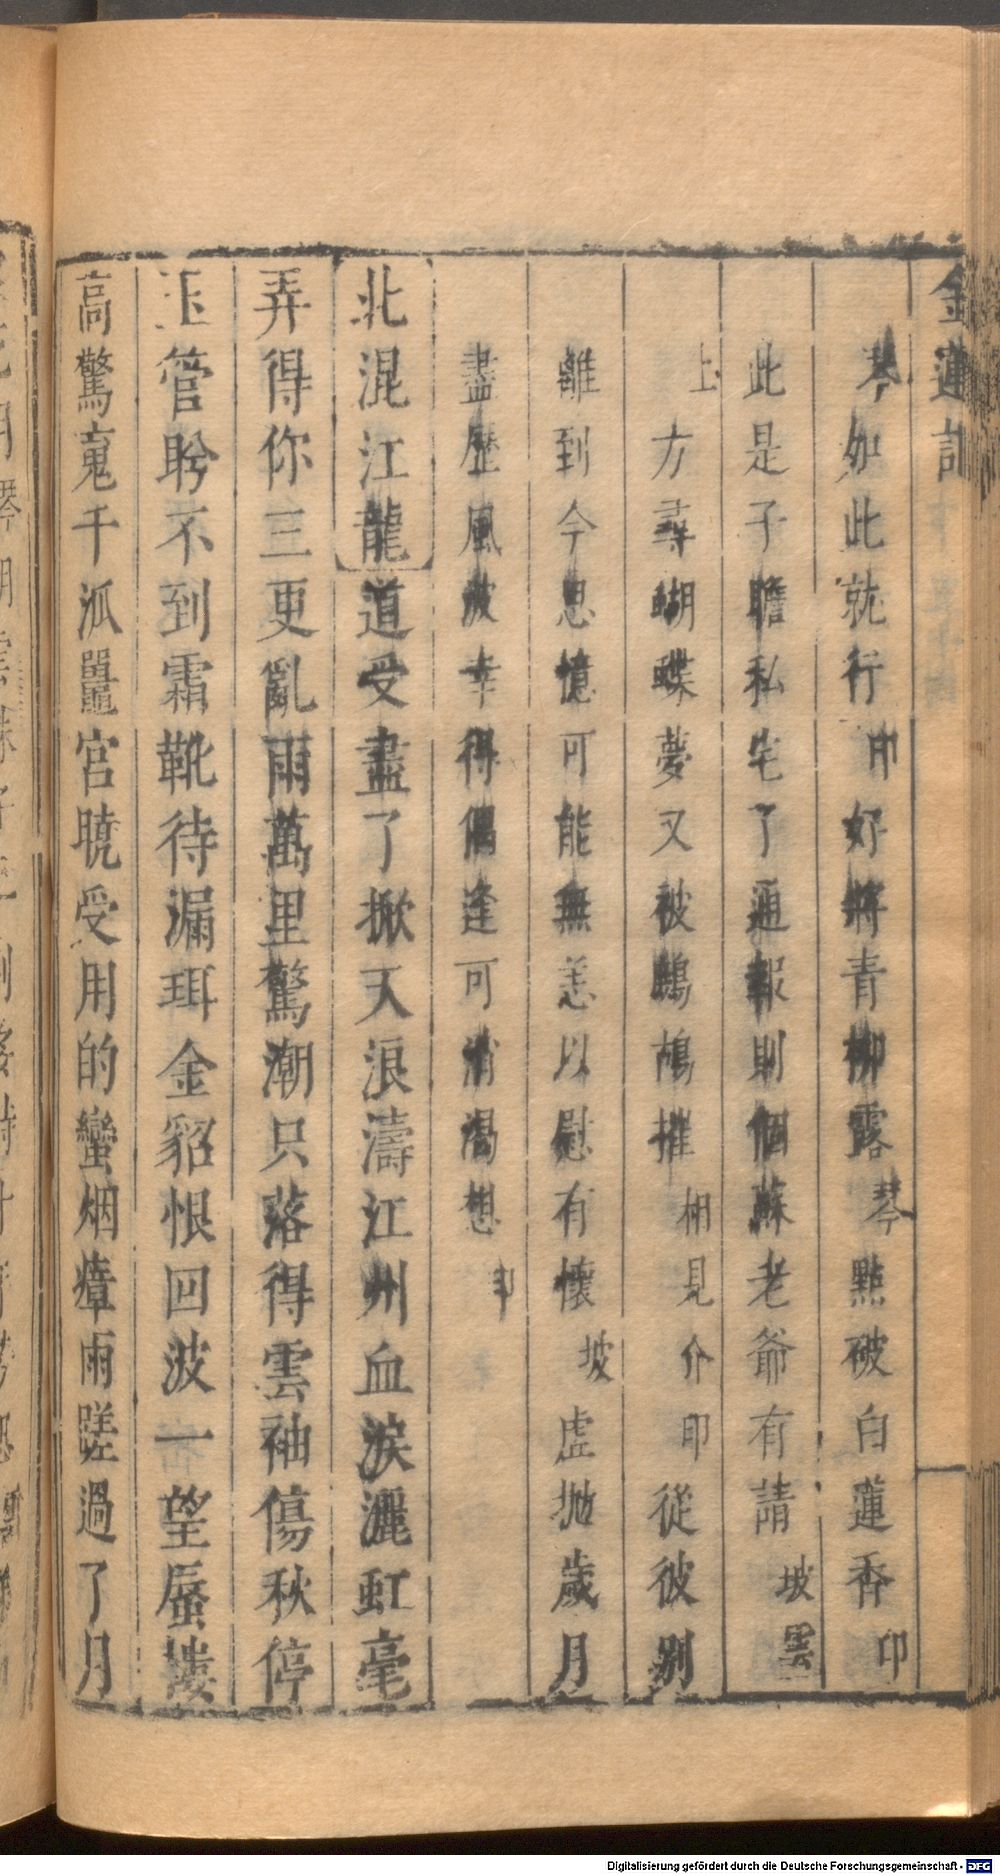 金蓮記
琴如此就行朋好將青柳露琴點破白蓮香印
此是子瞻私宅了通報則個蘇老爺有請坡雲
上方尋蝴蝶夢又被鷓鴣摧相見介印從彼别
離到今思憶可能無恙以慰有懷坡虚抛歲月
盡歷風波幸得偶逢可消渴想印
北混江龍道受盡了掀天浪濤江州血淚灑虹毫
弄得你三更亂雨萬里驚潮只落得雲袖傷秋停
玉管聆不到霜靴待漏珥金貂恨回波一望蜃樓
高驚䰟千派鼉宮曉受用的蠻烟瘴雨蹉過了月
Digitalisierung gefördert durch die Deutsche Forschungsgemeinschaft - DFG